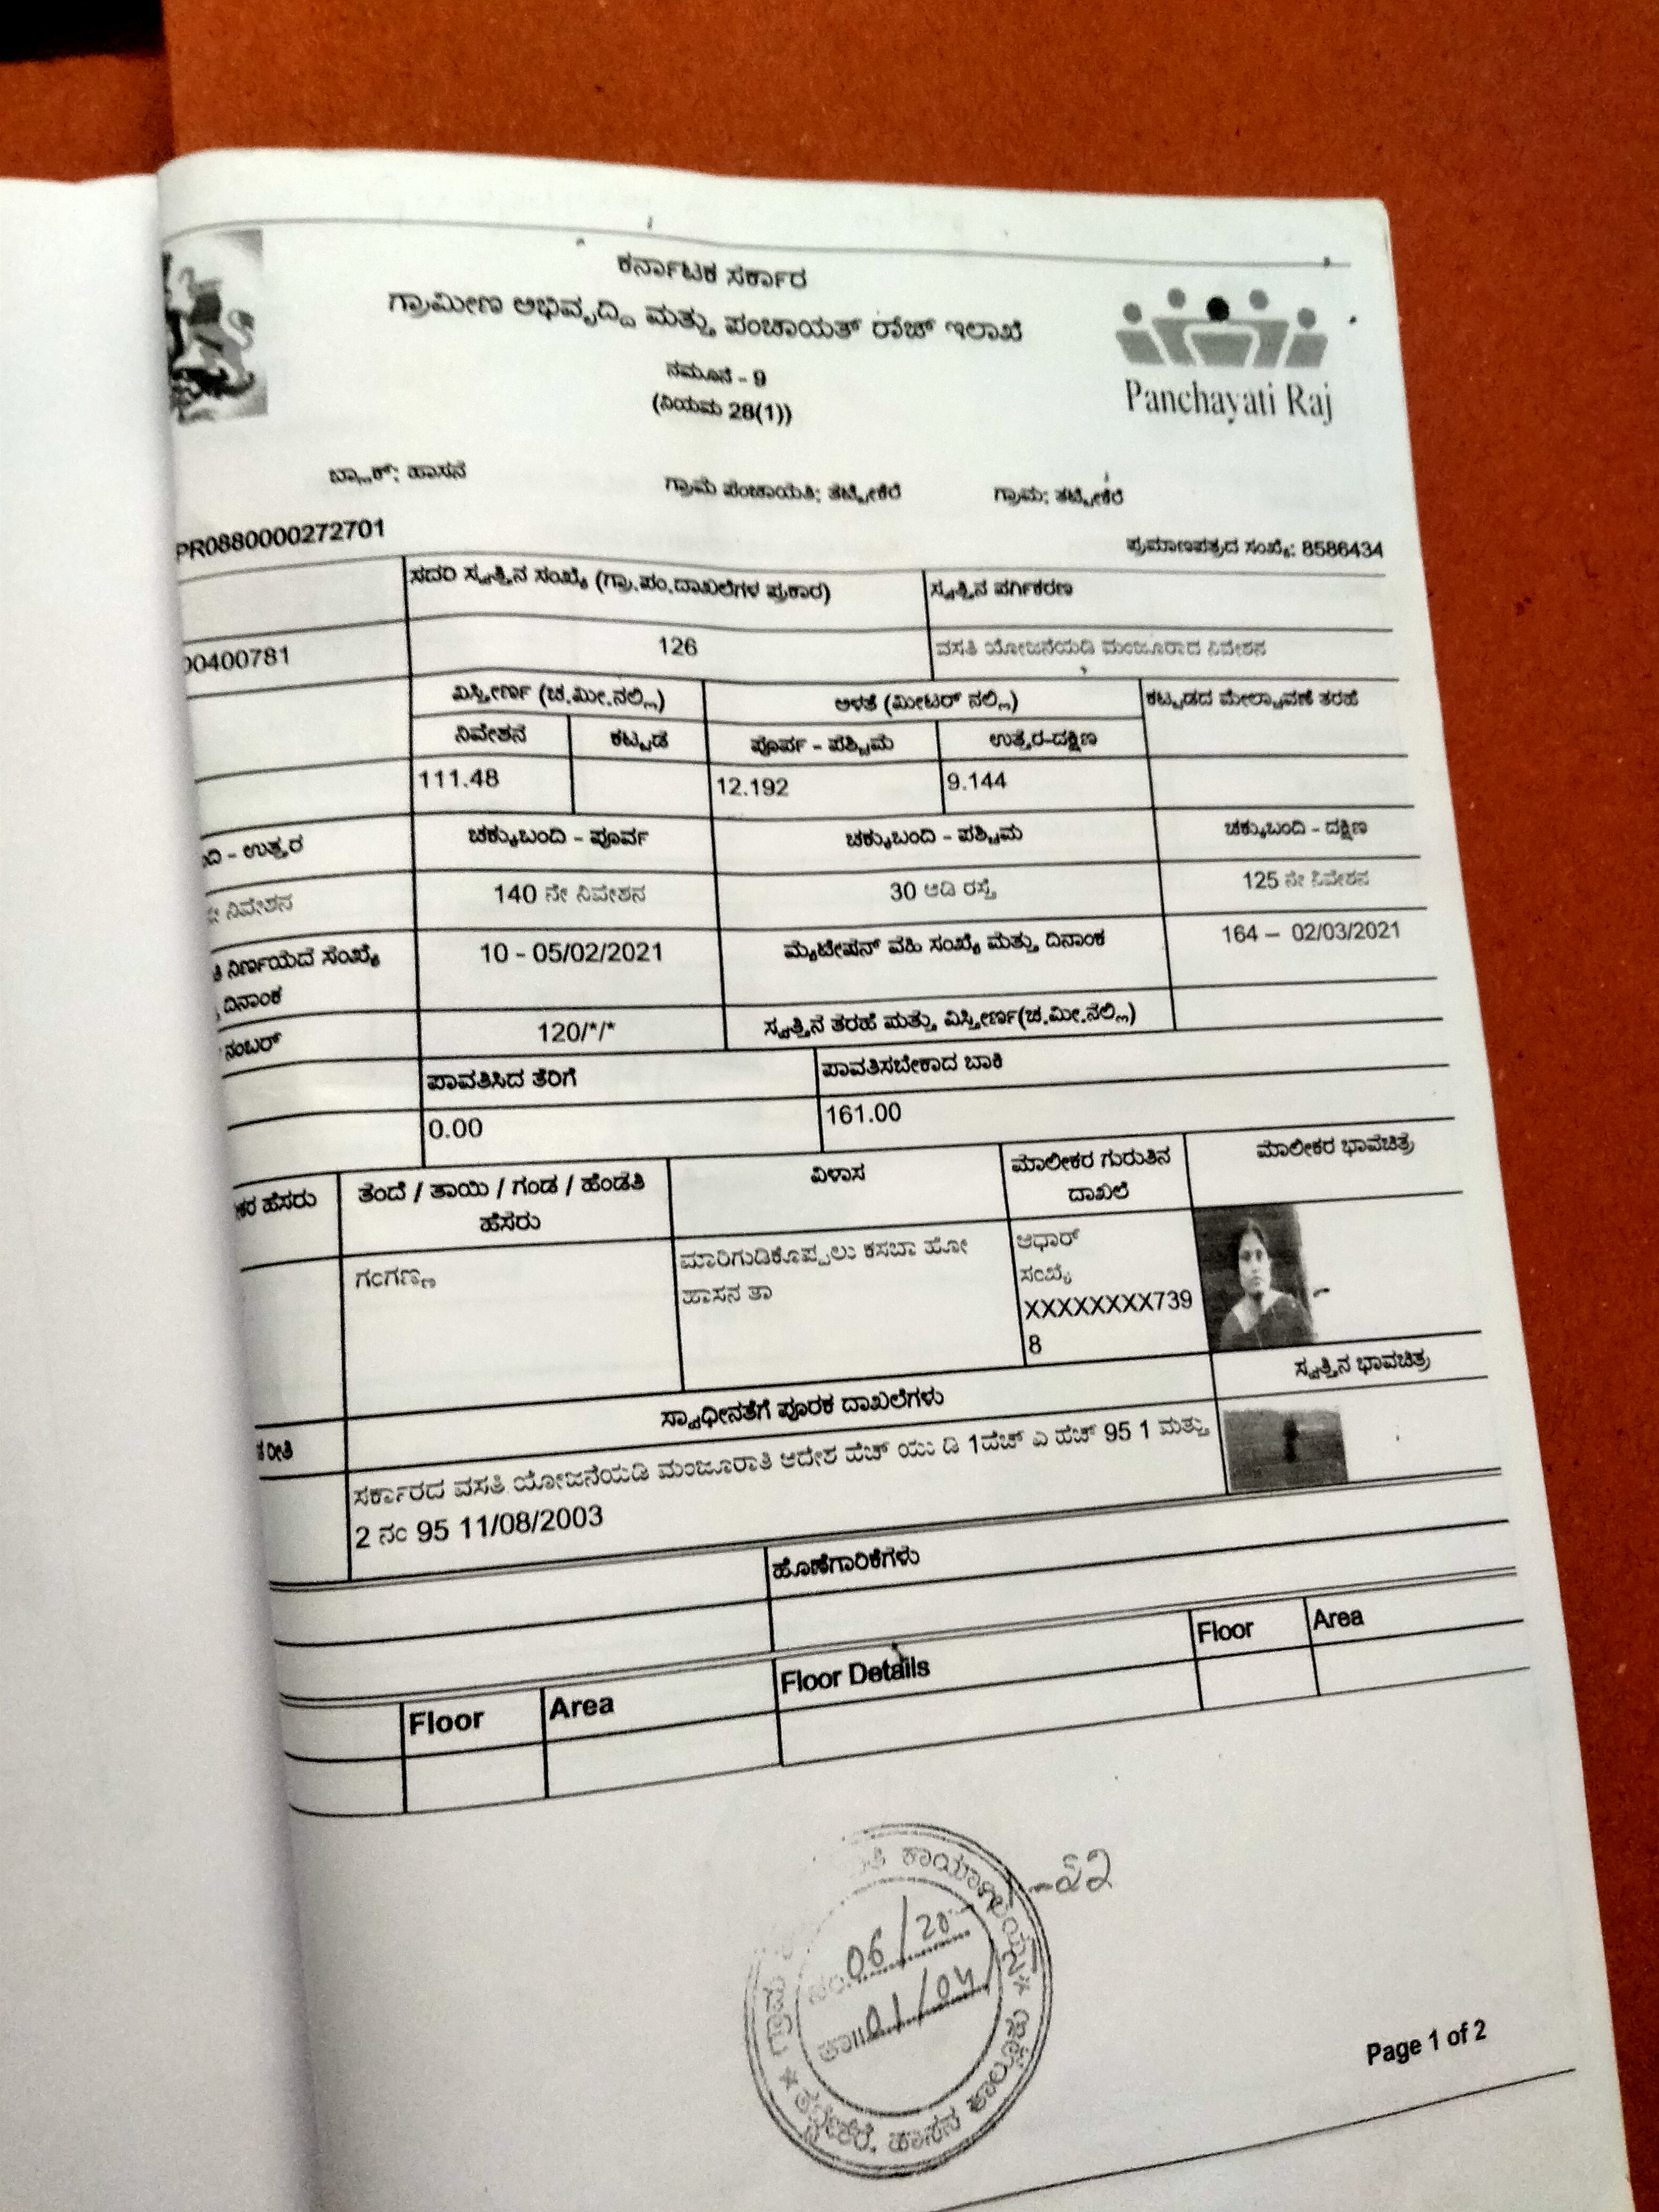 ಕರ್ನಾಟಕ ಸರ್ಕಾರ
ಗ್ರಾಮೀಣ ಅಭಿವೃದ್ದಿ ಮತ್ತು ಪಂಚಾಯತ್ ರಾಜ್ ಇಲಾಖೆ
ನಮೂನೆ - 9
(ನಿಯಮ 28(1))
Panchayati Raj
ಬ್ಲಾಕ್: ಹಾಸನ ಗ್ರಾಮ ಪಂಚಾಯತಿ: ತಟ್ಟೇಕೆರೆ ಗ್ರಾಮ: ತಟ್ಟೇಕೆರೆ
PR0880000272701 ಪ್ರಮಾಣಪತ್ರದ ಸಂಖ್ಯೆ: 8586434
ಸದರಿ ಸ್ವತ್ತಿನ ಸಂಖ್ಯೆ (ಗ್ರಾ.ಪಂ.ದಾಖಲೆಗಳ ಪ್ರಕಾರ) ಸ್ವತ್ತಿನ ವರ್ಗೀಕರಣ
00400781 126 ವಸತಿ ಯೋಜನೆಯಡಿ ಮಂಜೂರಾದ ನಿವೇಶನ
ವಿಸ್ತೀರ್ಣ (ಚ.ಮೀ.ನಲ್ಲಿ) ಅಳತೆ (ಮೀಟರ್ ನಲ್ಲಿ) ಕಟ್ಟಡದ ಮೇಲ್ಚಾವಣಿ ತರಹೆ
ನಿವೇಶನ ಕಟ್ಟಡ ಪೂರ್ವ - ಪಶ್ಚಿಮ ಉತ್ತರ-ದಕ್ಷಿಣ
111.48 12.192 9.144
ದಿ - ಉತ್ತರ ಚಕ್ಕುಬಂದಿ - ಪೂರ್ವ ಚಕ್ಕುಬಂದಿ - ಪಶ್ಚಿಮ ಚಕ್ಕುಬಂದಿ - ದಕ್ಷಿಣ
ನಿವೇಶನ 140 ನೇ ನಿವೇಶನ 30 ಅಡಿ ರಸ್ತೆ 125 ನೇ ನಿವೇಶನ
ನಿರ್ಣಯದ ಸಂಖ್ಯೆ 10 - 05/02/2021 ಮ್ಯುಟೇಷನ್ ವಹಿ ಸಂಖ್ಯೆ ಮತ್ತು ದಿನಾಂಕ 164 – 02/03/2021
ದಿನಾಂಕ
ನಂಬರ್ 120/*/* ಸ್ವತ್ತಿನ ತರಹೆ ಮತ್ತು ವಿಸ್ತೀರ್ಣ(ಚ.ಮೀ.ನಲ್ಲಿ)
ಪಾವತಿಸಿದ ತೆರಿಗೆ ಪಾವತಿಸಬೇಕಾದ ಬಾಕಿ
0.00 161.00
ಕರ ಹೆಸರು ತಂದೆ / ತಾಯಿ / ಗಂಡ / ಹೆಂಡತಿ ವಿಳಾಸ ಮಾಲೀಕರ ಗುರುತಿನ ಮಾಲೀಕರ ಭಾವಚಿತ್ರ
ಹೆಸರು ದಾಖಲೆ
ಗಂಗಣ್ಣ ಮಾರಿಗುಡಿಕೊಪ್ಪಲು ಕಸಬಾ ಹೋ ಆಧಾರ್
ಹಾಸನ ತಾ ಸಂಖ್ಯೆ
XXXXXXXX739
8
ಸ್ವಾಧೀನತೆಗೆ ಪೂರಕ ದಾಖಲೆಗಳು ಸ್ವತ್ತಿನ ಭಾವಚಿತ್ರ
ರೀತಿ
ಸರ್ಕಾರದ ವಸತಿ ಯೋಜನೆಯಡಿ ಮಂಜೂರಾತಿ ಆದೇಶ ಹೆಚ್ ಯು ಡಿ 1ಹೆಚ್ ಎ ಹೆಚ್ 95 1 ಮತ್ತು
2 ನಂ 95 11/08/2003
ಹೊಣೆಗಾರಿಕೆಗಳು
Floor Area Floor Details Floor Area
ಗ್ರಾಮ ಕಾರ್ಯಾಲಯ * ತಟ್ಟೇಕೆರೆ, ಹಾಸನ ತಾಲ್ಲೂಕು *
ನಂ. 06/20 -22
ತಾ॥ 01/04/
Page 1 of 2